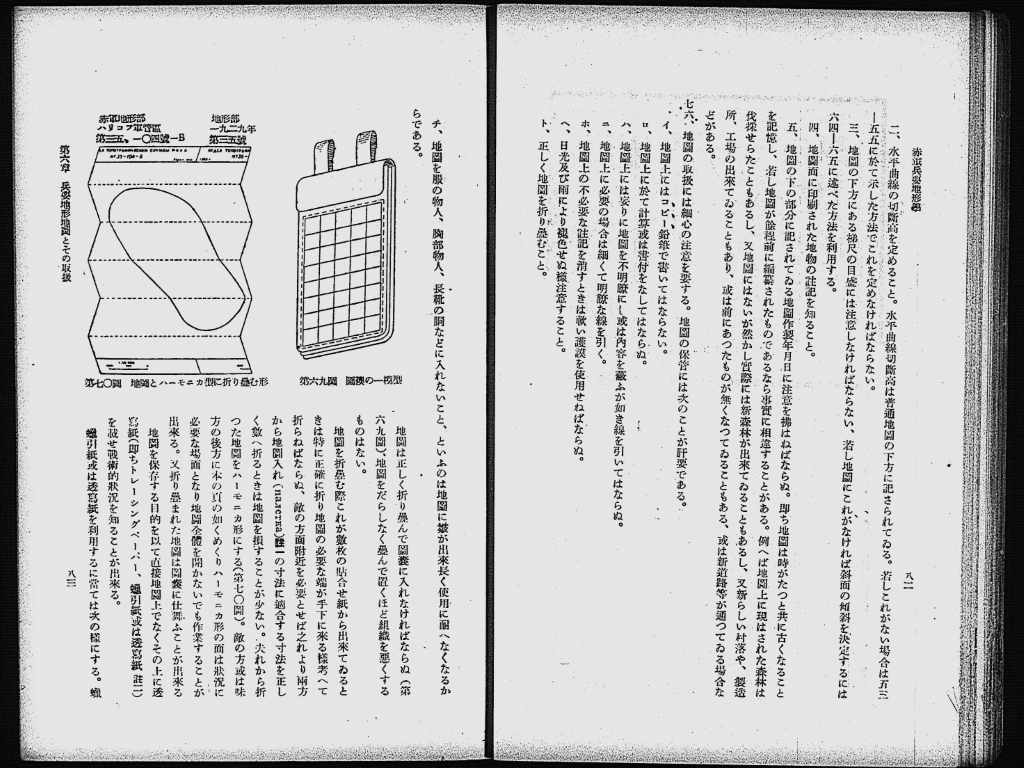 赤軍兵要地形學
八二
二、水平曲線の切斷高を定めること。水平曲線切斷高は普通地圖の下方に記されてゐる。若しこれがない場合は五三
―五五に於て示した方法でこれを定めなければならない。
三、地圖の下方にある梯尺の目盛には注意しなければならない、若し地圖にこれがなければ斜面の傾斜を決定するには
六四―六五に述べた方法を利用する。
四、地圖面に印刷された地物の註記を知ること。
五、地圖の下の部分に記されてゐる地圖作製年月日に注意を拂はねばならぬ。卽ち地圖は時がたつと共に古くなること
を記憶し、若し地圖が餘程前に編纂されたものであるなら事實に相違することがある。例へば地圖上に現はされた森林は
伐採せられたこともあるし、又地圖にはないが然かし實際には新森林が出來てゐることもあるし、又新らしい村落や、製造
所、工場の出來てゐることもあり、或は前にあつたものが無くなつてゐることもある、或は新道路等が通つてゐる場合な
どがある。
七六、地圖の取扱には細心の注意を要する。地圖の保管には次のことが肝要である。
イ、地圖上にはコピー鉛筆で書いてはならない。
ロ、地圖上に於て計算或は寄付をなしてはならぬ。
ハ、地圖上には妄りに地圖を不明瞭にし或は内容を蔽ふが如き線を引いてはならぬ。
ニ、地圖上に必要の場合は細くて明瞭な線を引く。
ホ、地圖上の不必要な註記を消すときは軟い護謨を使用せねばならぬ。
ヘ、日光及び雨により褪色せぬ樣注意すること。
ト、正しく地圖を折り疊むこと。
チ、地圖を服の物入、胸部物入、長靴の胴などに入れないこと、といふのは地圖に皺が出來長く使用に耐へなくなるか
らである。
第六九圖 圖囊の一模型
赤軍地形部
ハリコフ軍管區
第三五、一〇四號―B
地形部
一九二九年
第三五號
第七〇圖 地圖とハーモニカ型に折り疊む形
地圖は正しく折り疊んで圖囊に入れなければならぬ(第
六九圖)、地圖をだらしなく疊んで置くほど組織を惡くする
ものはない。
地圖を折疊む際これが數枚の貼合せ紙から出來てゐると
きは特に正確に折り地圖の必要な端が手下に來る樣考へて
折らねばならぬ、敵の方面附近を必要とせば之れより兩方
から地圖入れ(палетка)(註一)の寸法に適合する寸法を正し
く數へ折るときは地圖を損することが少ない。夫れから折
つた地圖をハーモニカ形にする(第七〇圖)。敵の方或は味
方の後方に本の頁の如くめくりハーモニカ形の面は狀況に
必要な場面となり地圖全體を開かないでも作業することが
出來る。又折り疊まれた地圖は圖囊に仕舞ふことが出來る
地圖を保存する目的を以て直接地圖上でなくその上に透
寫紙(卽ちトレーシングペーパー、蠟引紙或は透寫紙 註二)
を載せ戰術的狀況を知ることが出來る。
蠟引紙或は透寫紙を利用するに當ては次の樣にする。蠟
第六章 兵要地形地圖とその取扱
八三